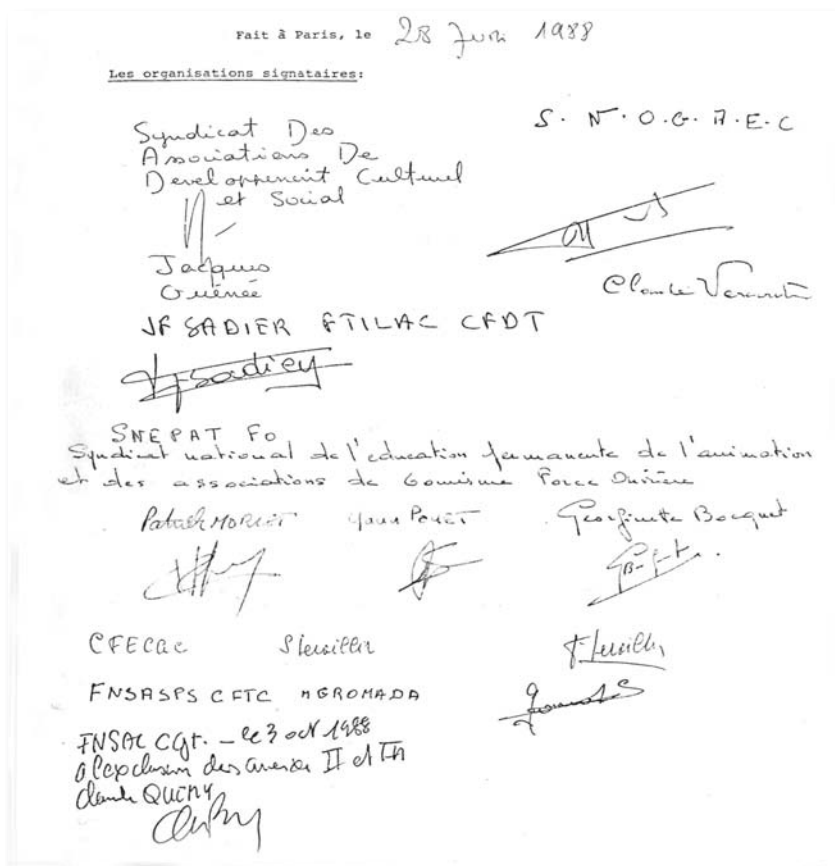 Fait à Paris, le 28 Juin 1988
Les organisations signataires:
Syndicat Des
Associations De
Developpement Culturel
et Social
S. N. O. G. A. E. C
Jacques
Guénée
Claude
JF SADIER FTILAC CFDT
JF Sadier
SNEPAT FO
Syndicat national de l'education permanente de l'animation
et des associations de tourisme Force Ouvrière
Patrick MORIET Yann POYET Georginette Bocquet
CFECGC
FNSASPS CFTC M GROMADA
FNSAC CGT. - le 3 oct 1988
à l'exclusion des annexes II et
Claude QUEMY